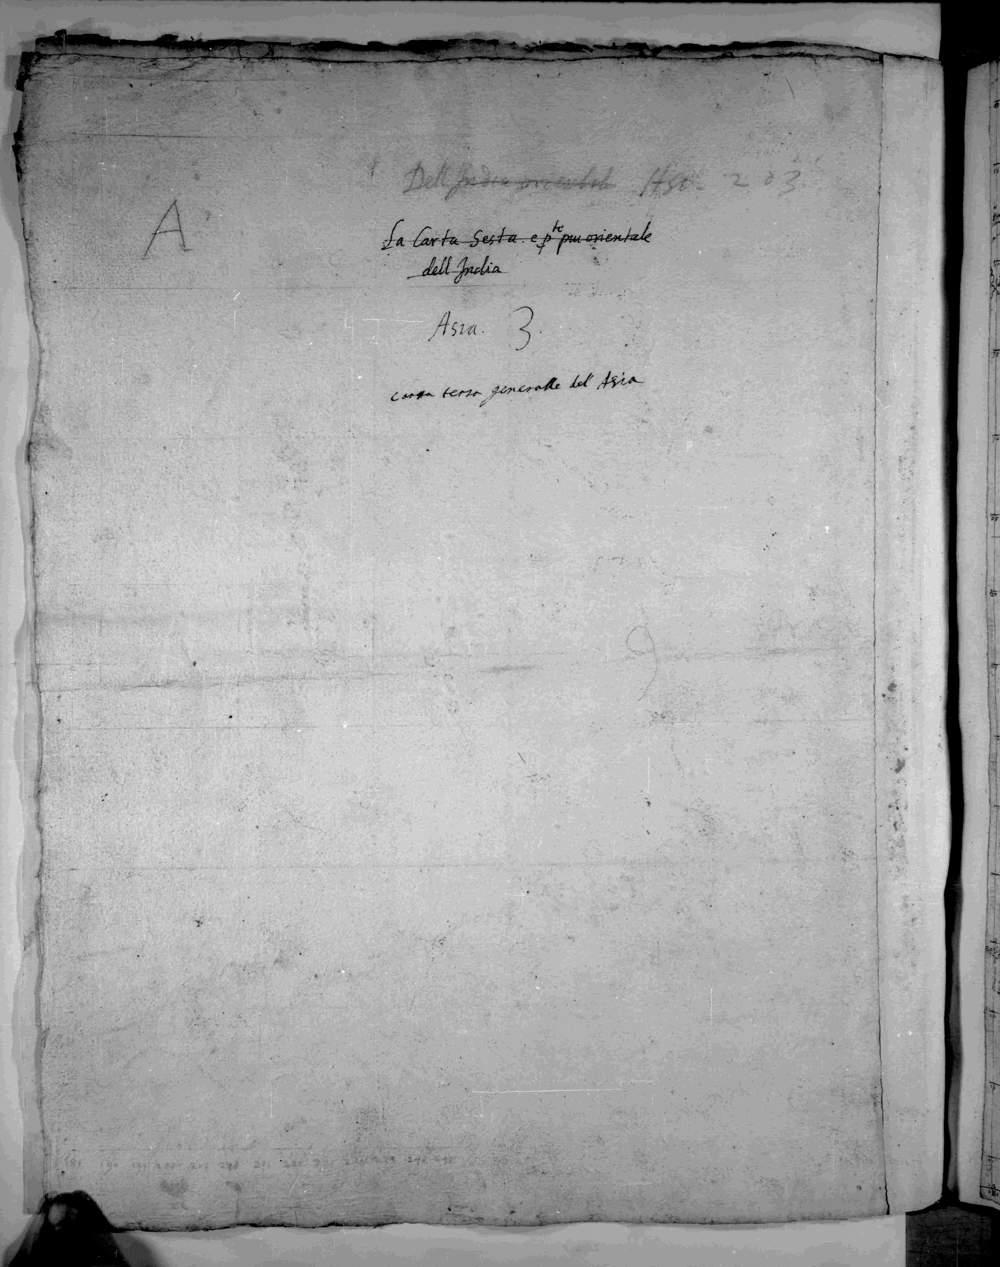 Dell India orientale Asi. 203
A
La Carta Sesta e pte piu orientale
dell India
Asia. 3.
carta terza generalle del Asia
9